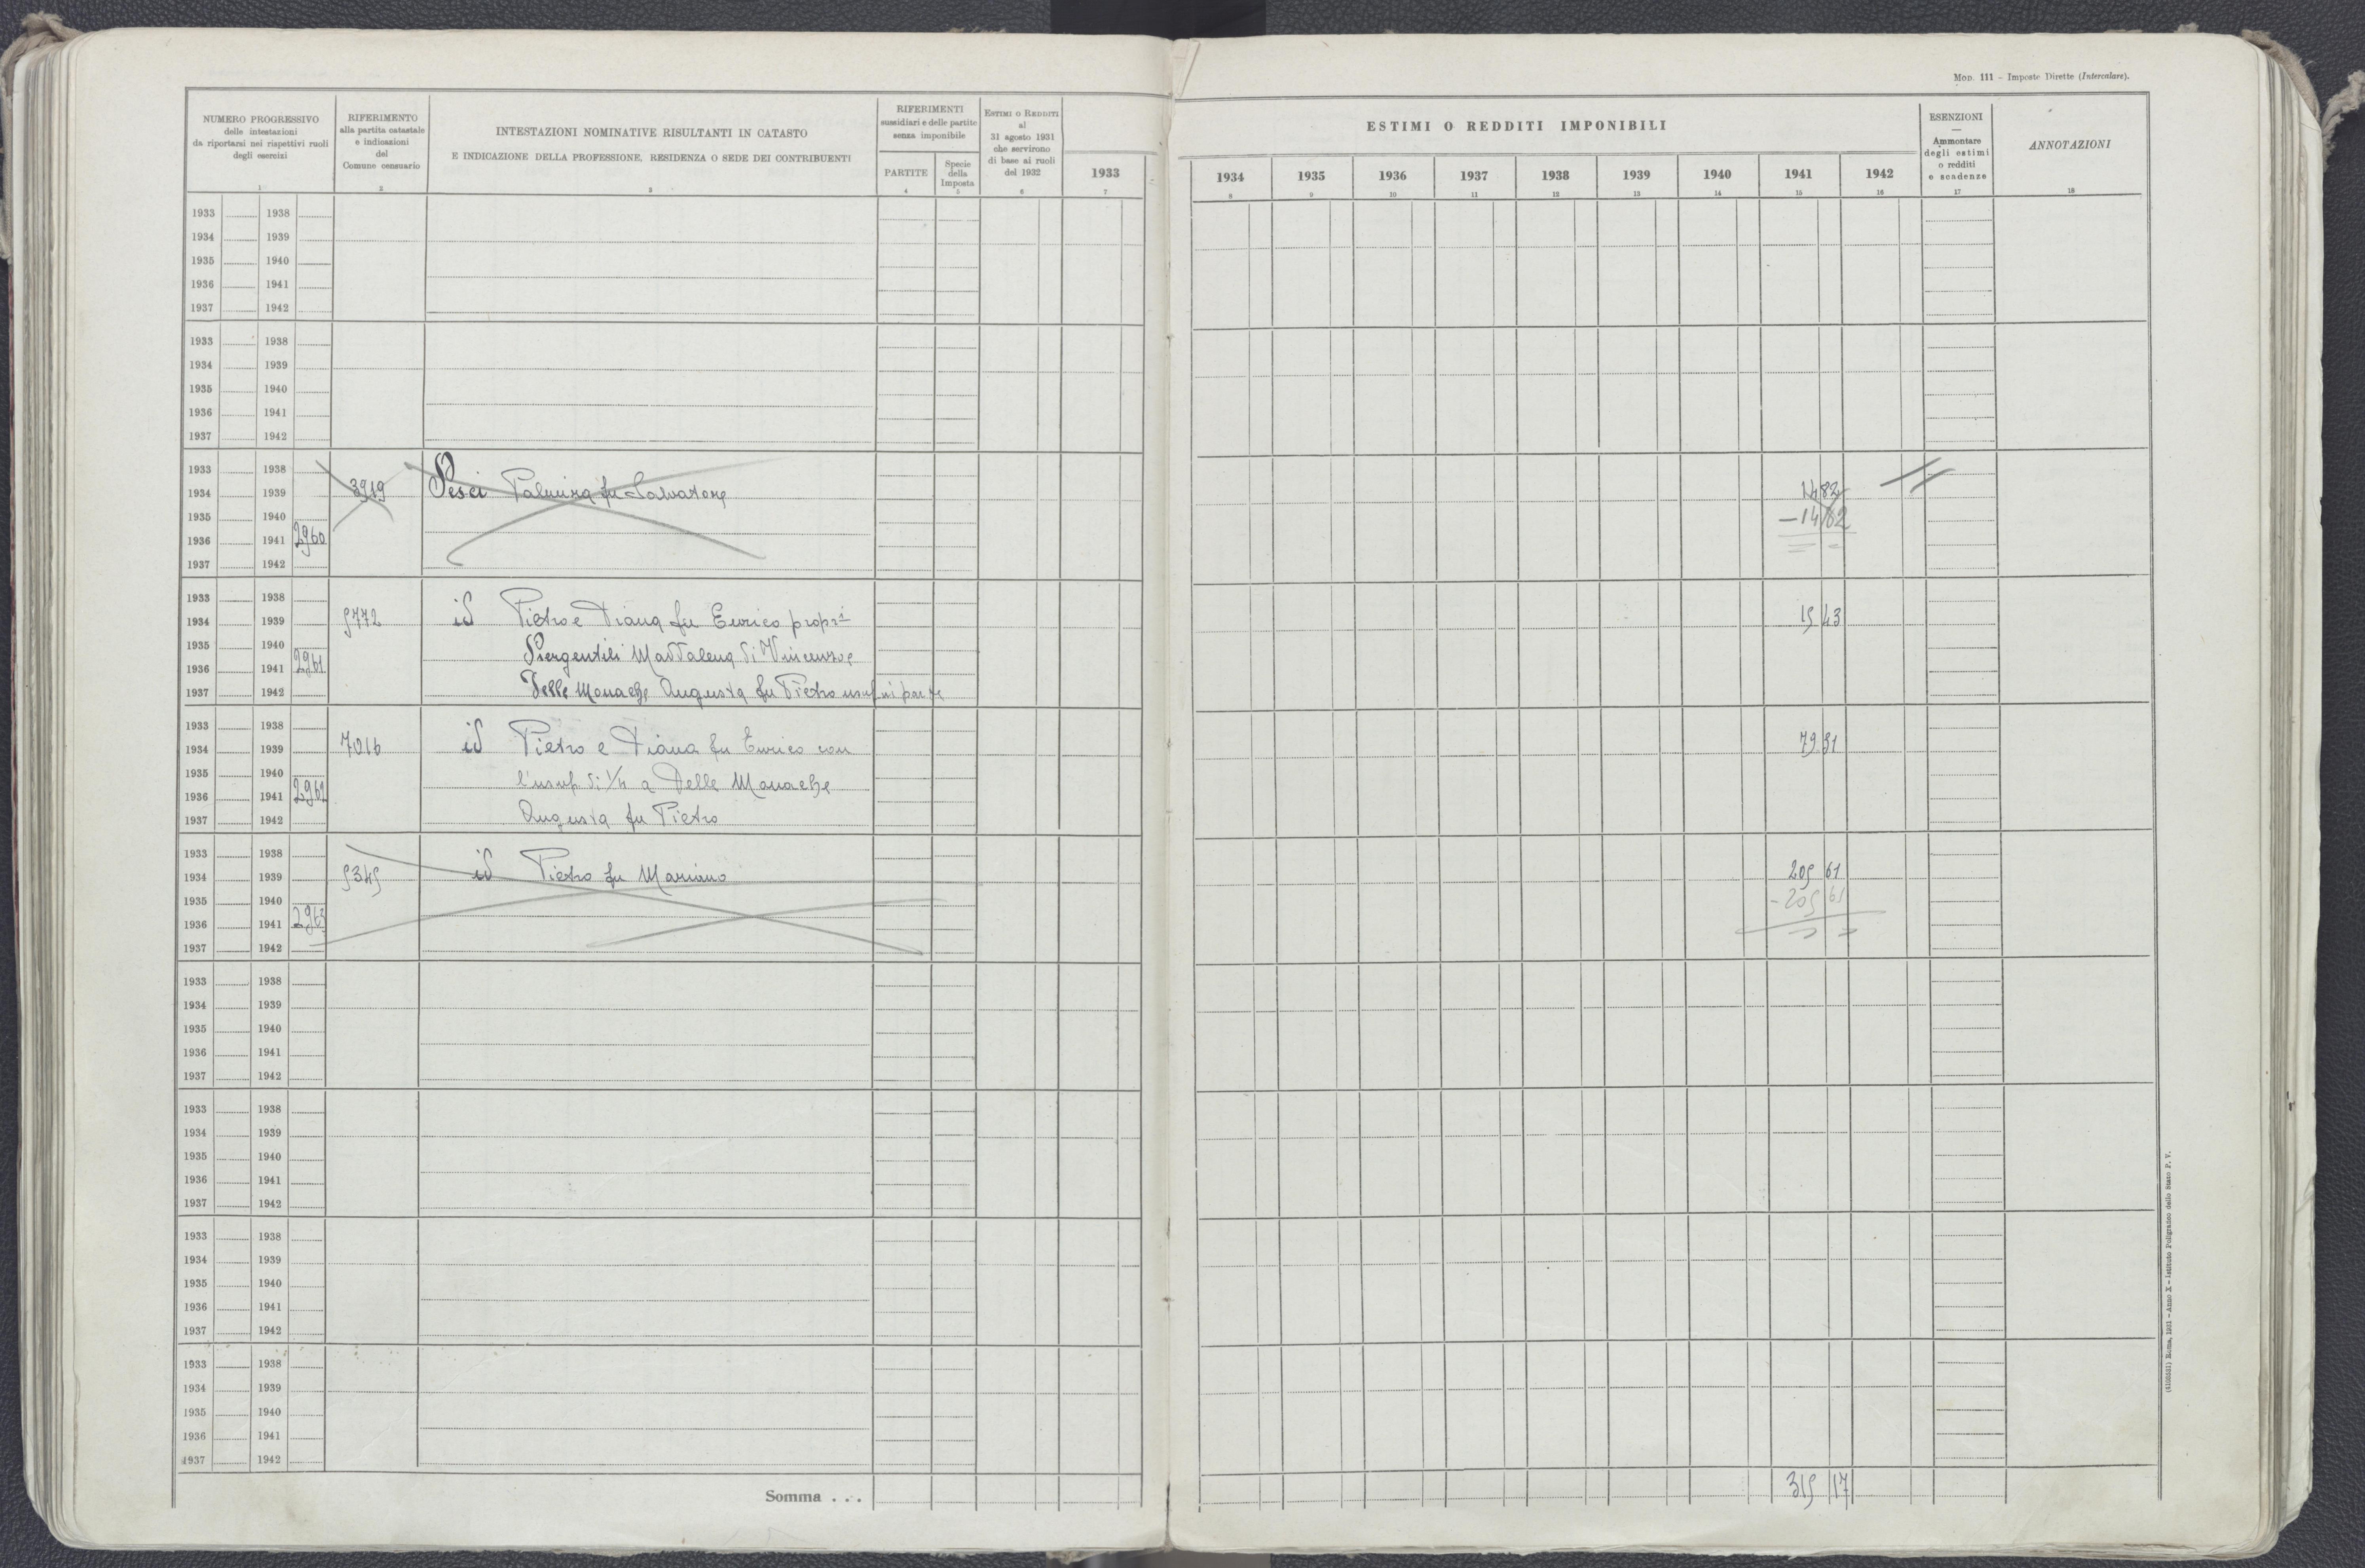 Mod. 111 - Imposte Dirette (Intercalare).
NUMERO PROGRESSIVO
delle intestazioni
da riportarsi nei rispettivi ruoli
degli esercizi
1
RIFERIMENTO
alla partita catastale
e indicazioni
del
Comune censuario
2
INTESTAZIONI NOMINATIVE RISULTANTI IN CATASTO
E INDICAZIONE DELLA PROFESSIONE, RESIDENZA O SEDE DEI CONTRIBUENTI
3
RIFERIMENTI
sussidiari e delle partite
senza imponibile
PARTITE
4
Specie
della
Imposta
5
ESTIMI O REDDITI
al
31 agosto 1931
che servirono
di base ai ruoli
del 1932
6
1933
7
ESTIMI O REDDITI IMPONIBILI
1934 1935 1936 1937 1938 1939 1940 1941 1942
8 9 10 11 12 13 14 15 16
ESENZIONI
—
Ammontare
degli estimi
o redditi
e scadenze
17
ANNOTAZIONI
18
1933 1938
1934 1939
1935 1940
1936 1941
1937 1942
1933 1938
1934 1939
1935 1940
1936 1941
1937 1942
1933 1938
1934 1939 3919 Pesci Palmira fu Salvatore 14 82
1935 1940 -14 82
1936 1941 2960
1937 1942
1933 1938
1934 1939 5772 id Pietro e Diana fu Enrico propri 15 43
1935 1940
1936 1941 2961 Piergentili Maddalena di Vincenzo e
1937 1942 Delle Monache Augusta fu Pietro usuf in parte
1933 1938
1934 1939 7016 id Pietro e Diana fu Enrico con 79 31
1935 1940
1936 1941 2962 l'usuf. di 1/4 a Delle Monache
1937 1942 Augusta fu Pietro
1933 1938
1934 1939 5345 id Pietro fu Mariano 205 61
1935 1940 -205 61
1936 1941 2963
1937 1942
1933 1938
1934 1939
1935 1940
1936 1941
1937 1942
1933 1938
1934 1939
1935 1940
1936 1941
1937 1942
1933 1938
1934 1939
1935 1940
1936 1941
1937 1942
1933 1938
1934 1939
1935 1940
1936 1941
1937 1942
Somma . . . 315 17
Roma, 1931 - Anno X - Istituto Poligrafico dello Stato P. V.